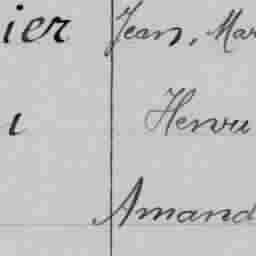 ier Jean, Mar
ı Henri
Amand